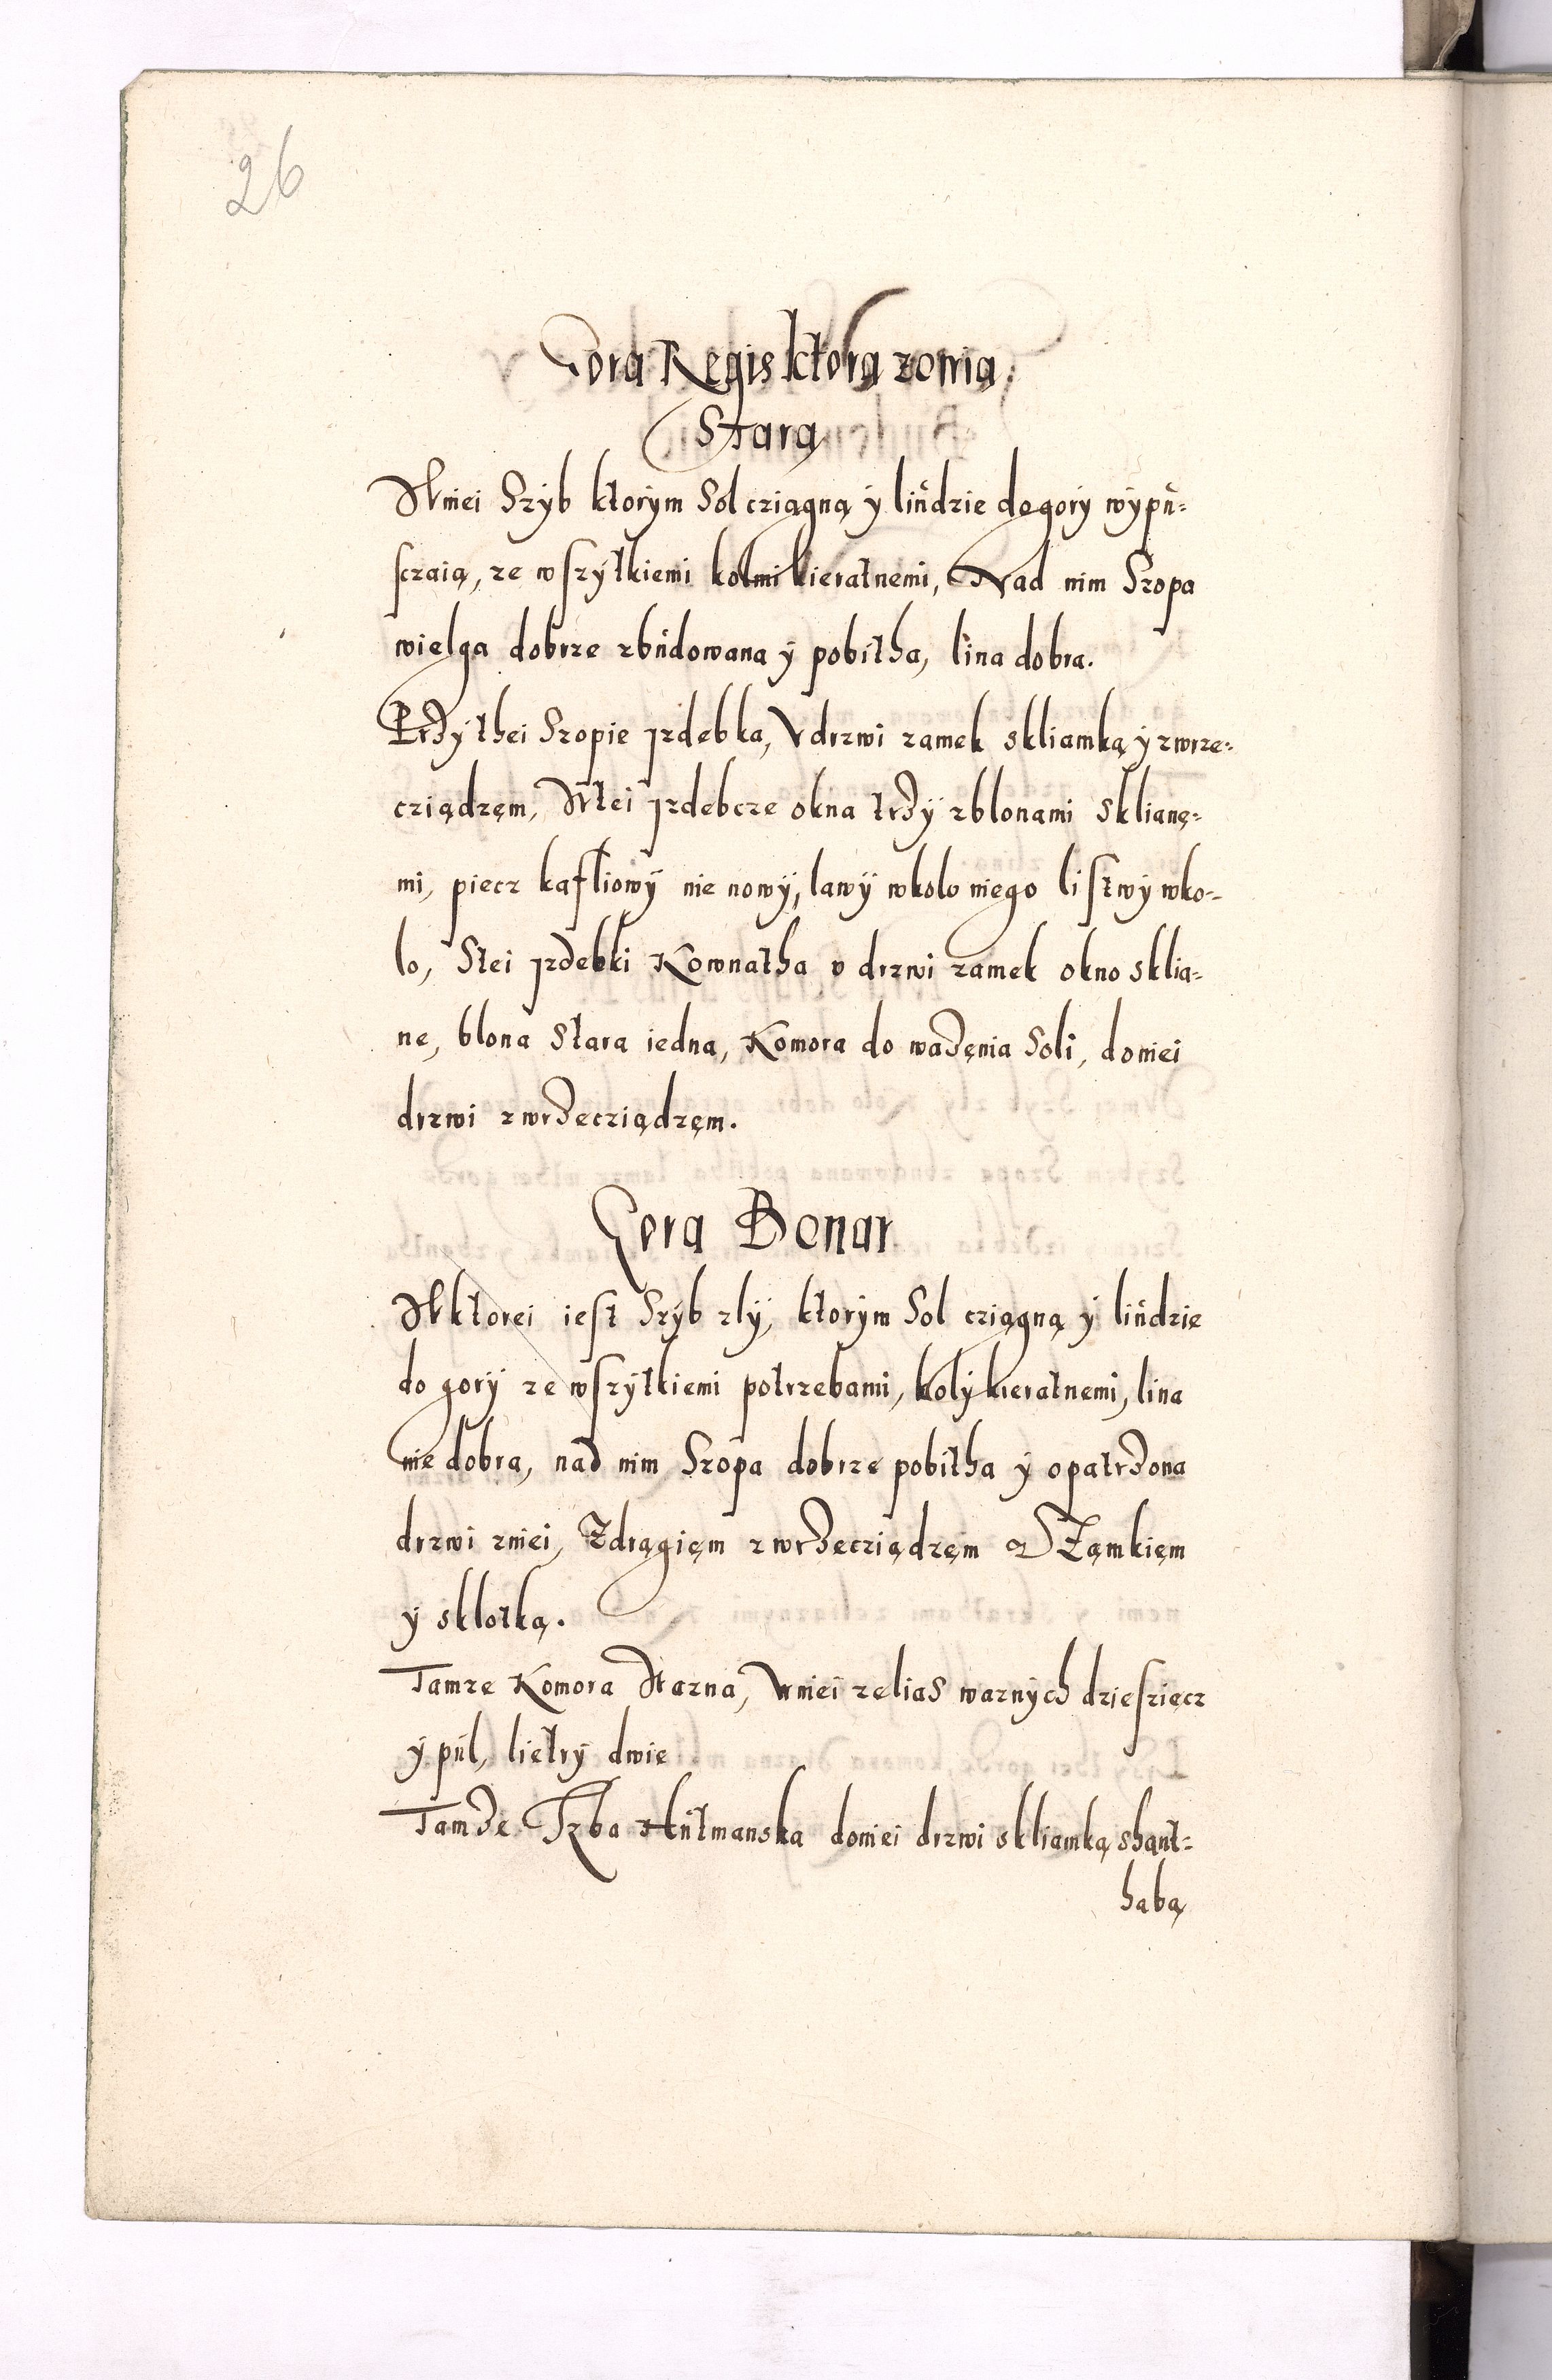 26
Gora Regis ktorą zowią
Starą
W niei Szyb ktorym Sol cziągną y liudzie do gory wypu=
sczaią, ze wszytkiemi kołmi kieratnemi, Nad nim Szopa
wielga dobrze zbudowana y pobitha, lina dobra.
Przy thei Szopie jzdebka, V drzwi zamek skliamką y zwrze=
cziądzęm, W tei jzdebcze okna trzy zblonami sklianę=
mi, piecz kafliowy nie nowy, lawy wkolo niego listwy wko=
lo, S tei jzdebki Kownatha v drzwi zamek okno sklia=
ne, blona stara iedna, Komora do ważęnia Soli, do niei
drzwi zwrzecziądzęm.
Gora Bonar
W ktorei iest Szyb zly, ktorym Sol cziągną y liudzie
do gory ze wszytkiemi potrzebami, koly kieratnemi, lina
nie dobra, nad nim Szopa dobrze pobitha y opatrzona
drzwi zniei, Zdrągięm zwrzecziądzęm Zamkięm
y sklotką.
Tamze Komora Ważna, W niei zelias ważnych dziesziecz
y pul, lietry dwie
Tamże Izba Hutmanska do niei drzwi skliamką shant=
habą